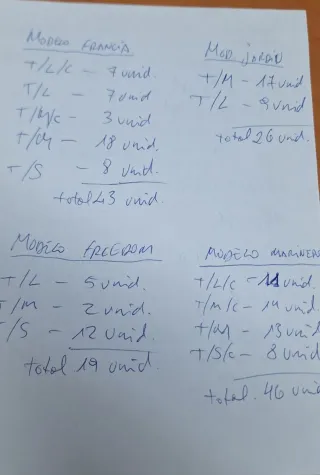 MODELO FRANCIA
T/L/C - 7 unid.
T/L - 7 unid
T/M/C - 3 unid
T/M - 18 unid.
T/S - 8 unid.
total 43 unid.
MOD. JARDIN
T/M - 17 unid
T/L - 9 unid
total 26 unid.
MODELO FREEDOM
T/L - 5 unid.
T/M - 2 unid.
T/S - 12 unid.
total 19 unid.
MODELO MARINERO
T/L/C - 11 unid.
T/M/C - 14 unid.
T/M - 13 unid
T/S/C - 8 unid
total. 46 unid